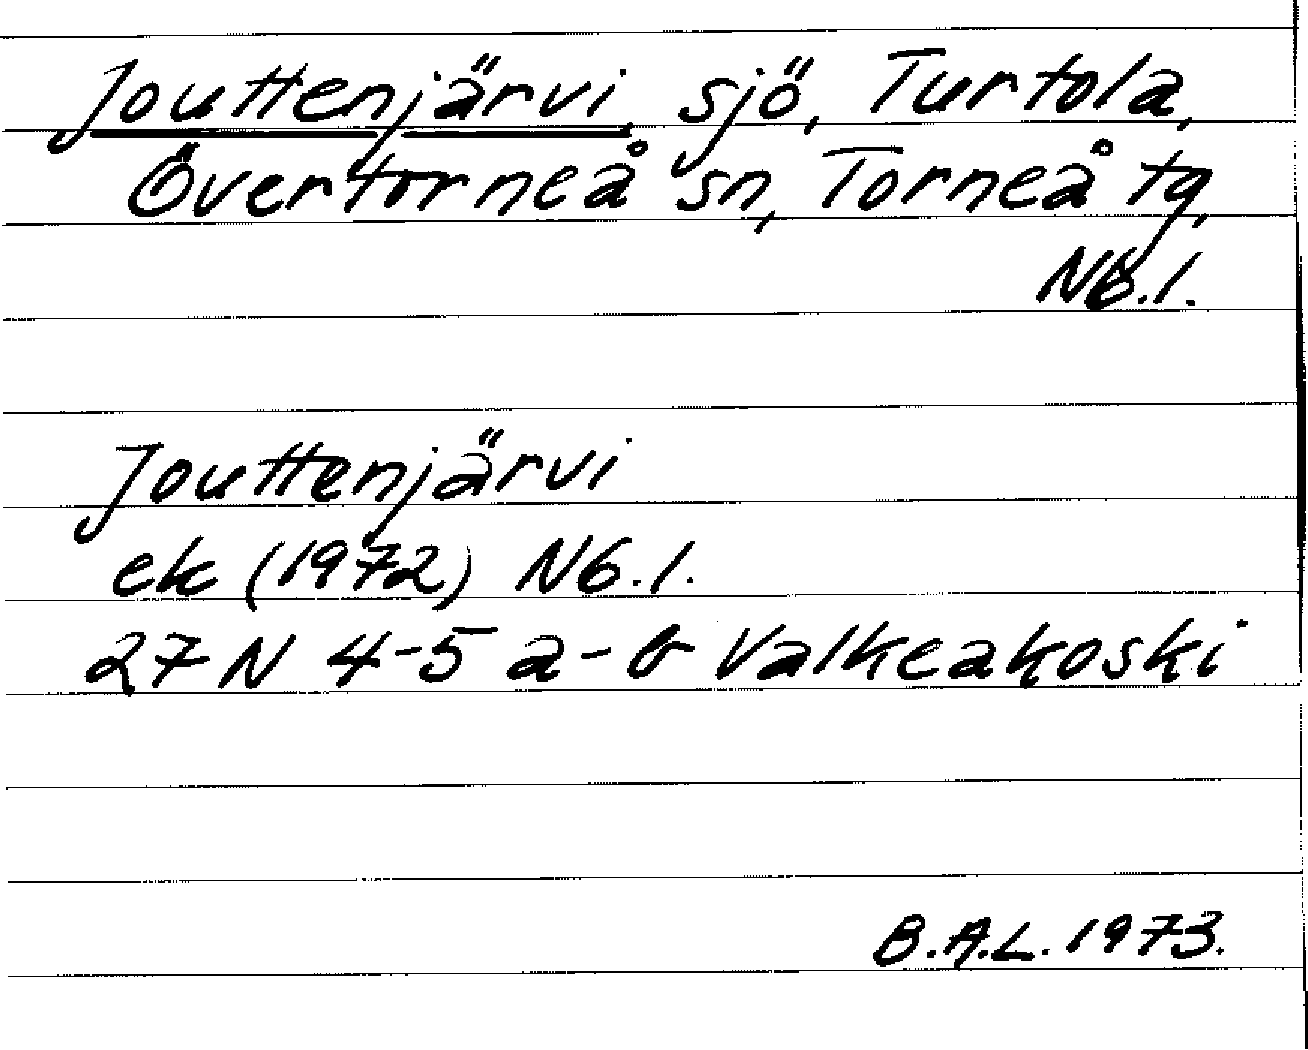 Jouttenjärvi, sjö, Turtola,
Övertorneå sn, Torneå tg,
Nb.l.
Jouttenjärvi
ek (1972) Nb.l.
27 N 4-5 a-b Valkeakoski
B.A.L. 1973.